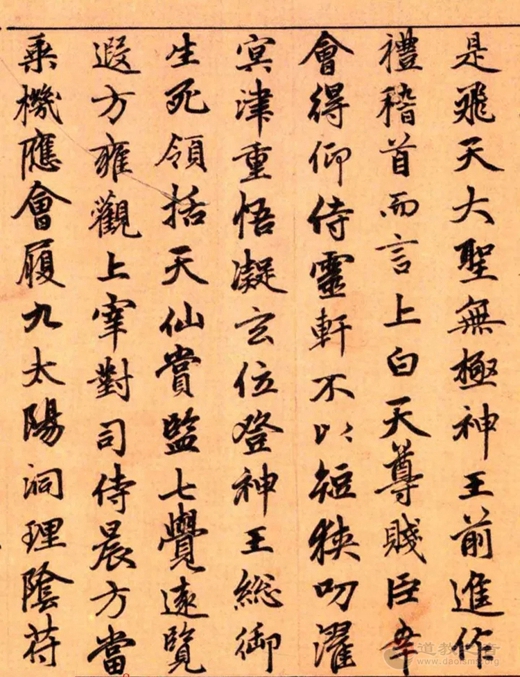 是飛天大聖無極神王前進作
禮稽首而言上白天尊賤臣幸
會得仰侍靈軒不以短狹叨濯
冥津重悟凝玄位登神王総御
生死領括天仙賞監七覺遠覽
遐方雍觀上宰對司侍晨方當
乘機應會履九太陽洞理隂苻
道教之音